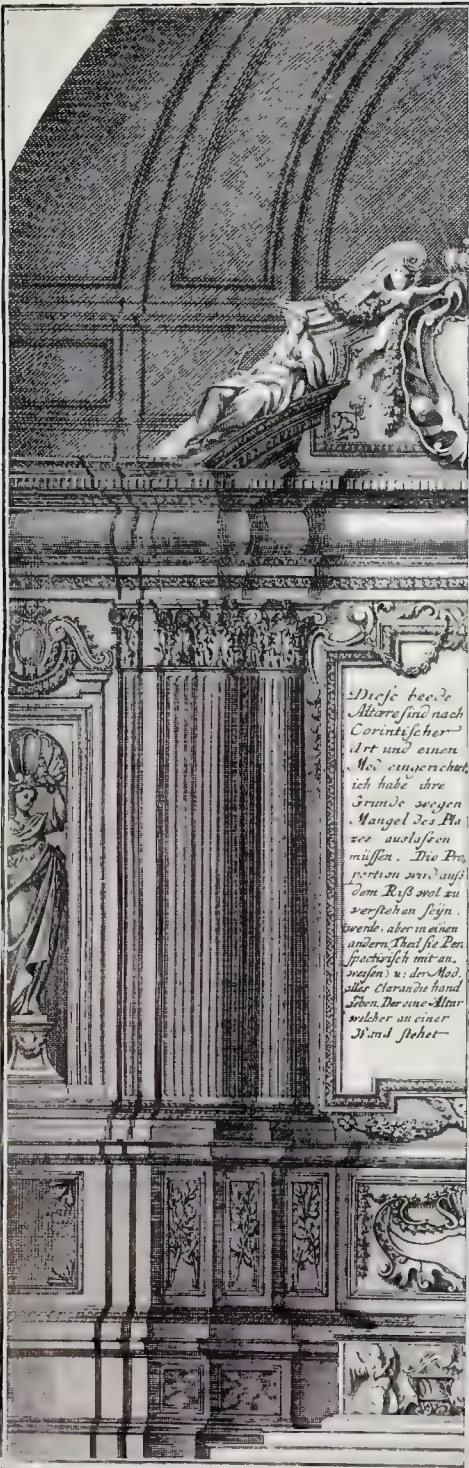 Diese beede
Altære sind nach
Corintischer
Art und einen
Mod eingerichtet,
ich habe ihre
Grunde wegen
Mangel des Pla
zes auslassen
müssen. Die Pro,
portion wird auß
dem Riß wol zu
verstehen seÿn.
werde, aber in einen
andern Theil sie Per
spectivisch mit an,
weisen, u: der Mod.
alles Clar an die hand
geben. Der eine Altar
welcher an einer
Wand stehet